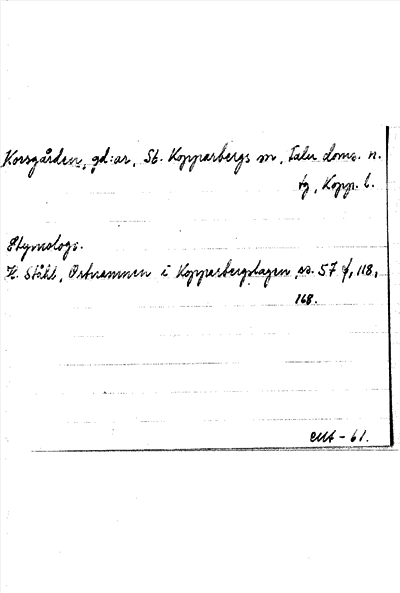 Korsgården, gd:ar, St. Kopparbergs sn, Falu doms. n.
tg, Kopp. l.
Etymologs.
H. Ståhl, Ortnamnen i Kopparbergslagen, ss. 57 f, 118,
168.
-61.